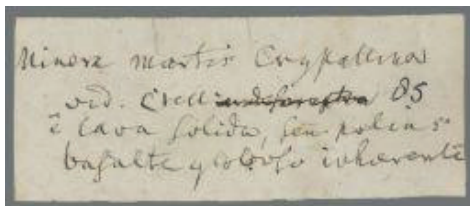 Minera martis Crystallina
vid. Crell 85
ē lava solida, seu potius
basalte globoso inhærente